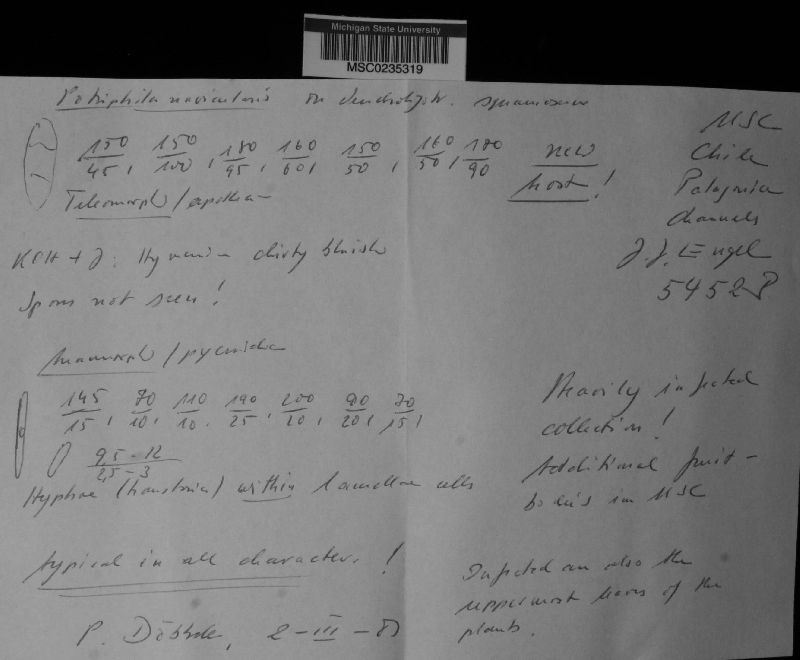 Michigan State University
MSC0235319
Potriphila navicularis on Dendroligotr. squamosum
150/45, 150/100, 180/95, 160/60, 150/50, 160/50, 170/90
new host!
Teleomorph / apothecia
KOH + J: Hymenium dirty bluish
Spores not seen!
MSC
Chile
Patagonian
channels
J.J. Engel
5452P
Anamorph / pycnidia
145/15, 70/10, 110/10, 190/25, 200/20, 90/20, 70/15,
9,5-12/2,5-3
Hyphae (haustoria) within lamellae cells
Heavily infected
collection!
Additional fruit-
bodies in MSC
typical in all character. !
Infected are also the
uppermost leaves of the
plants.
P. Döbbeler, 2-III-